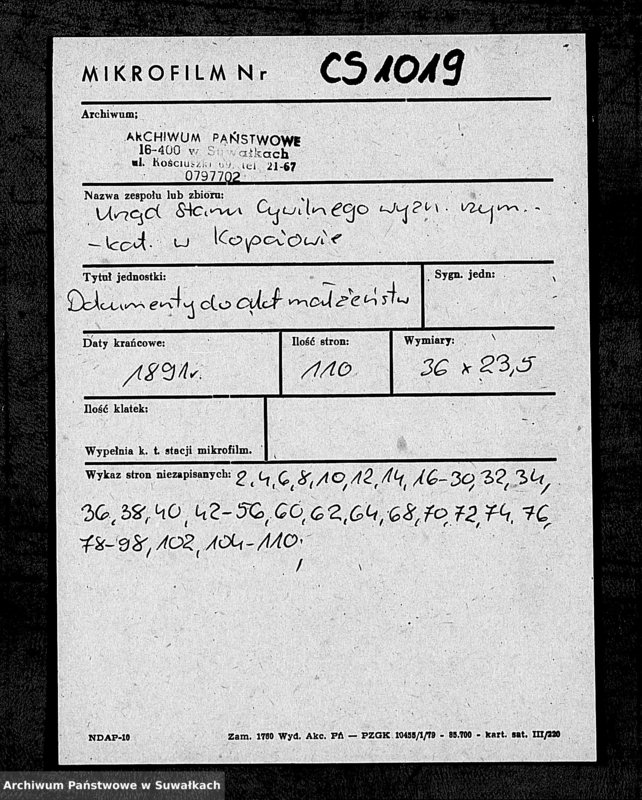 MIKROFILM Nr CS1019
Archiwum;
ARCHIWUM PAŃSTWOWE
16-400 w Suwałkach
ul. Kościuszki 69, tel. 21-67
0797702
Nazwa zespołu lub zbioru:
Urząd Stanu Cywilnego wyzn. rzym.-
-kat. w Kopciowie
Tytuł jednostki:
Sygn. jedn:
Dokumenty do akt małżeństw
Daty krańcowe:
Ilość stron:
Wymiary:
1891r.
110
36 x 23,5
Ilość klatek:
Wypełnia k. t. stacji mikrofilm.
Wykaz stron niezapisanych: 2,4,6,8,10,12,14,16-30,32,34,
36,38,40,42-56,60,62,64,68,70,72,74,76,
78-98,102,104-110.
NDAP-10
Zam. 1760 Wyd. Akc. PŃ — PZGK 10458/1/79 - 85.700 - kart. sat. III/220
Archiwum Państwowe w Suwałkach